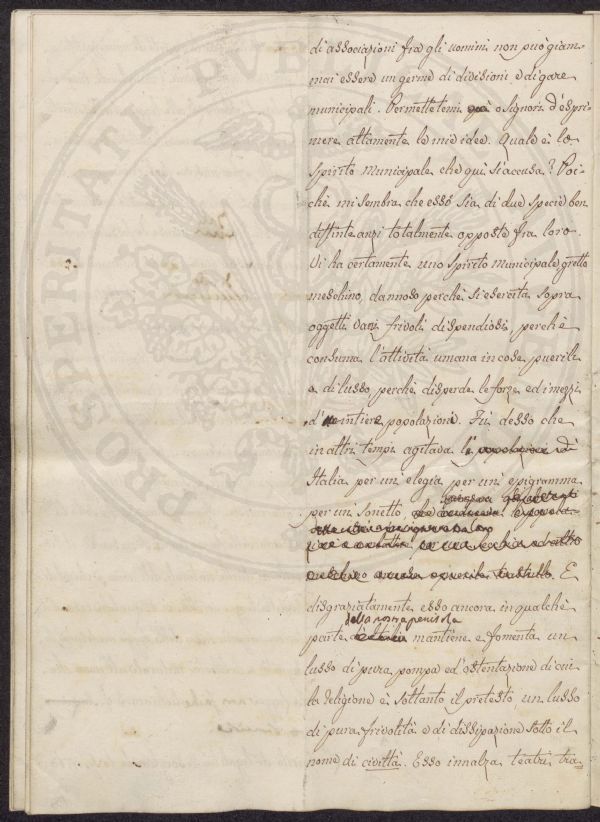 di associazioni fra gli uomini non può giam-
mai essere un germe di divisioni e di gare
municipali. Permettetemi o Signori d'espri-
mere altamente le mie idee. Quale è lo
Spirito Municipale che qui si accusa? Poi-
chè mi sembra che esso sia di due specie ben
distinte anzi totalmente opposte fra loro.
Vi ha certamente uno Spirito Municipale gretto
meschino, dannoso perchè si esercita sopra
oggetti vani frivoli dispendiosi perchè
consuma l'attività umana in cose puerili
e di lusso perchè disperde le forze ed i mezzi
d' intiere popolazioni. Fù desso che
in altri tempi agitava l' popolazioni di
Italia per un'elegia per un'epigramma
per un Sonetto
E
disgraziatamente esso ancora in qualche
della nostra penisola
parte mantiene e fomenta un
lusso di pura pompa ed ostentazione di cui
la religione è soltanto il pretesto un lusso
di pura frivolità e di dissipazione sotto il
nome di civiltà. Esso innalza teatri tra
PROSPERITATI PUBLICAE